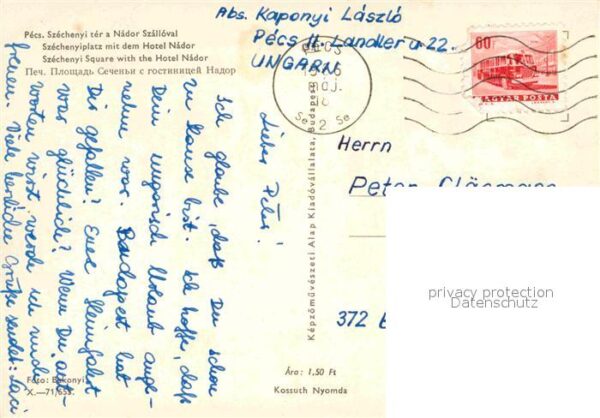 Pécs. Széchenyi tér a Nádor Szállóval
Széchenyiplatz mit dem Hotel Nádor
Széchenyi Square with the Hotel Nádor
Печ. Площадь Сеченьи с гостиницей Надор
Abs. Kaponyi László
Pécs II. Landler u 22.
UNGARN
PÉCS
2
60
MAGYAR POSTA
Herrn
Peter
372
privacy protection
Datenschutz
Képzőművészeti Alap Kiadóvállalata, Budapest
Lieber Peter!
Ich glaube, daß Du schon
zu Hause bist. Ich hoffe, daß
Dein ungarischer Urlaub ange-
nehm war. Budapest hat
Dir gefallen? Eure Heimfahrt
war glücklich? Wenn Du ant-
worten wirst, werde ich mich
freuen. Viele herzliche Grüße sendet: Laci
Foto: Bakonyi
X.—71,653.
Ára: 1,50 Ft
Kossuth Nyomda